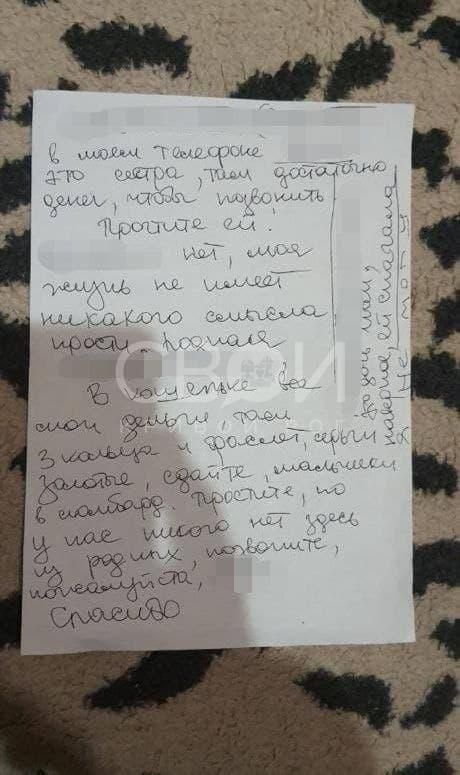 в моем телефоне
это сестра, там достаточно
денег, чтобы позвонить
Прочтите ей.
нет, моя
жизнь не имеет
никакого смысла
прости, родная
В кошельке все
мои деньги там
3 кольца и браслет, серьги
золотые, сдайте, малышки
в ломбард. Простите, но
у нас никого нет здесь
из родных, позвоните,
пожалуйста,
Спасибо
наверное, ей сначала
не могу
СВОИ
КРИВОЙ РОГ